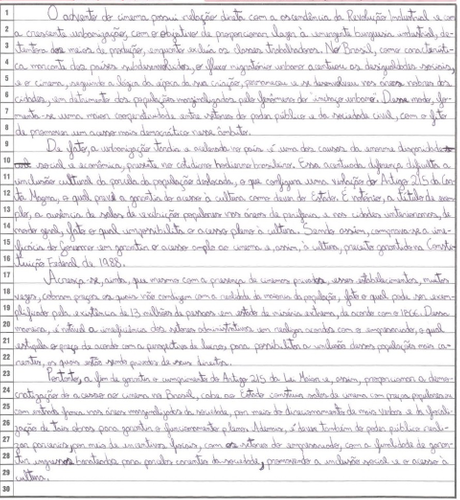 1 O advento do cinema possui relação direta com a ascendência da Revolução Industrial e com
2 a crescente urbanização, com o objetivo de proporcionar lazer à emergente burguesia industrial, de-
3 tentora dos meios de produção, enquanto excluía as classes trabalhadoras. No Brasil, como caracterís-
4 ca marcante dos países subdesenvolvidos, o fluxo migratório urbano acentuou as desigualdades sociais,
5 e o cinema, seguindo a lógica da época de sua criação, permaneceu e se desenvolveu nas áreas nobres das
6 cidades, em detrimento das populações marginalizadas pelo fenômeno do "inchaço urbano". Desse modo, fo-
7 menta-se uma maior cooperatividade entre setores do poder público e da sociedade civil, com o fito
8 de promover um acesso mais democrático nesse âmbito.
9 De fato, a urbanização tardia e acelerada no país é uma das causas da enorme disparidade
10 social e econômica, presente no cotidiano hodierno brasileiro. Essa acentuada diferença dificulta a
11 inclusão cultural da parcela da população deslocada, o que configura uma violação do Artigo 215 da Car-
12 ta Magna, o qual prevê a garantia do acesso à cultura como dever do Estado. É notório, a título de exem-
13 plo, a ausência de salas de exibição populares nas áreas de periferia e nas cidades interioranas, de
14 modo geral, fato o qual impossibilita o acesso pleno à cultura. Sendo assim, comprova-se a ine-
15 ficiência do Governo em garantir o acesso amplo ao cinema e, assim, à cultura, preceito garantido na Consti-
16 tuição Federal de 1988.
17 Acresça-se, ainda, que mesmo com a presença de cinemas privados, esses estabelecimentos, muitas
18 vezes, cobram preços os quais não condizem com a realidade da maioria da população, fato o qual pode ser exem-
19 plificado pela existência de 13 milhões de pessoas em estado de miséria extrema, de acordo com o IBGE. Dessa
20 maneira, é crível a ineficiência dos setores administrativos em realizar acordos com o empresariado, o qual
21 estipula o preço de acordo com a perspectiva de lucros, para possibilitar a inclusão dessas populações mais ca-
22 rentes, as quais estão sendo privadas de seus direitos.
23 Portanto, a fim de garantir o cumprimento do Artigo 215 da Lei Maior e, assim, proporcionar a demo-
24 cratização do acesso ao cinema no Brasil, cabe ao Estado construir salas de cinema com preços populares ou
25 com entrada franca nas áreas marginalizadas da sociedade, por meio do direcionamento de mais verbas e da fiscali-
26 zação de tais obras para garantir o funcionamento pleno. Ademais, é dever também do poder público reali-
27 zar parcerias, por meio de incentivos fiscais, com os setores do empresariado, com a finalidade de garan-
28 tir ingressos barateados para parcelas carentes da sociedade, promovendo a inclusão social e o acesso à
29 cultura.
30